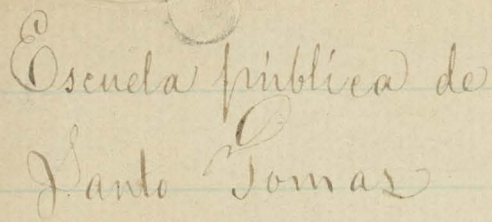 Escuela pública de
Santo Tomas